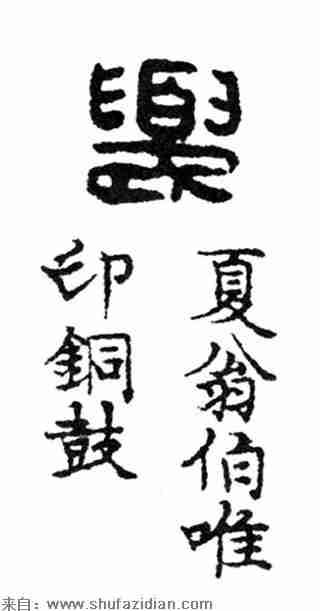 夏
夏翁伯唯
印銅鼓
来自：www.shufazidian.com